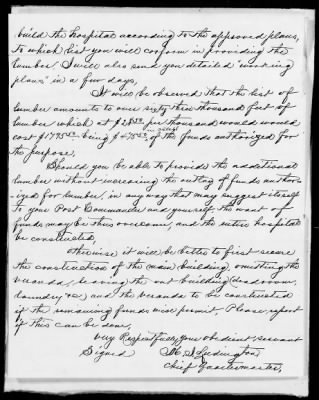 build the hospital according to the approved plans,
to which list you will conform in providing the
lumber. I will also send you detailed "working
plans" in a few days.
It will be observed that the list of
lumber amounts to over sixty three thousand feet of
lumber which at $28.50 per thousand would would
cost $1795.50 being $475.53 in excess of the funds authorized for
the purpose.
Should you be able to provide the additional
lumber without increasing the outlay of funds author-
ized for lumber, in any way that may suggest itself
to your Post Commander and yourself, the want of
funds may be thus overcome, and the entire hospital
be constructed,
Otherwise it will be better to first secure
the construction of the main building, omitting the
veranda, leaving the out building (deadroom,
laundry &c) and the veranda to be constructed
if the remaining funds will permit. Please report
if this can be done,
Very Respectfully your obedient servant
Signed M. I. Ludington
Chief Quartermaster,